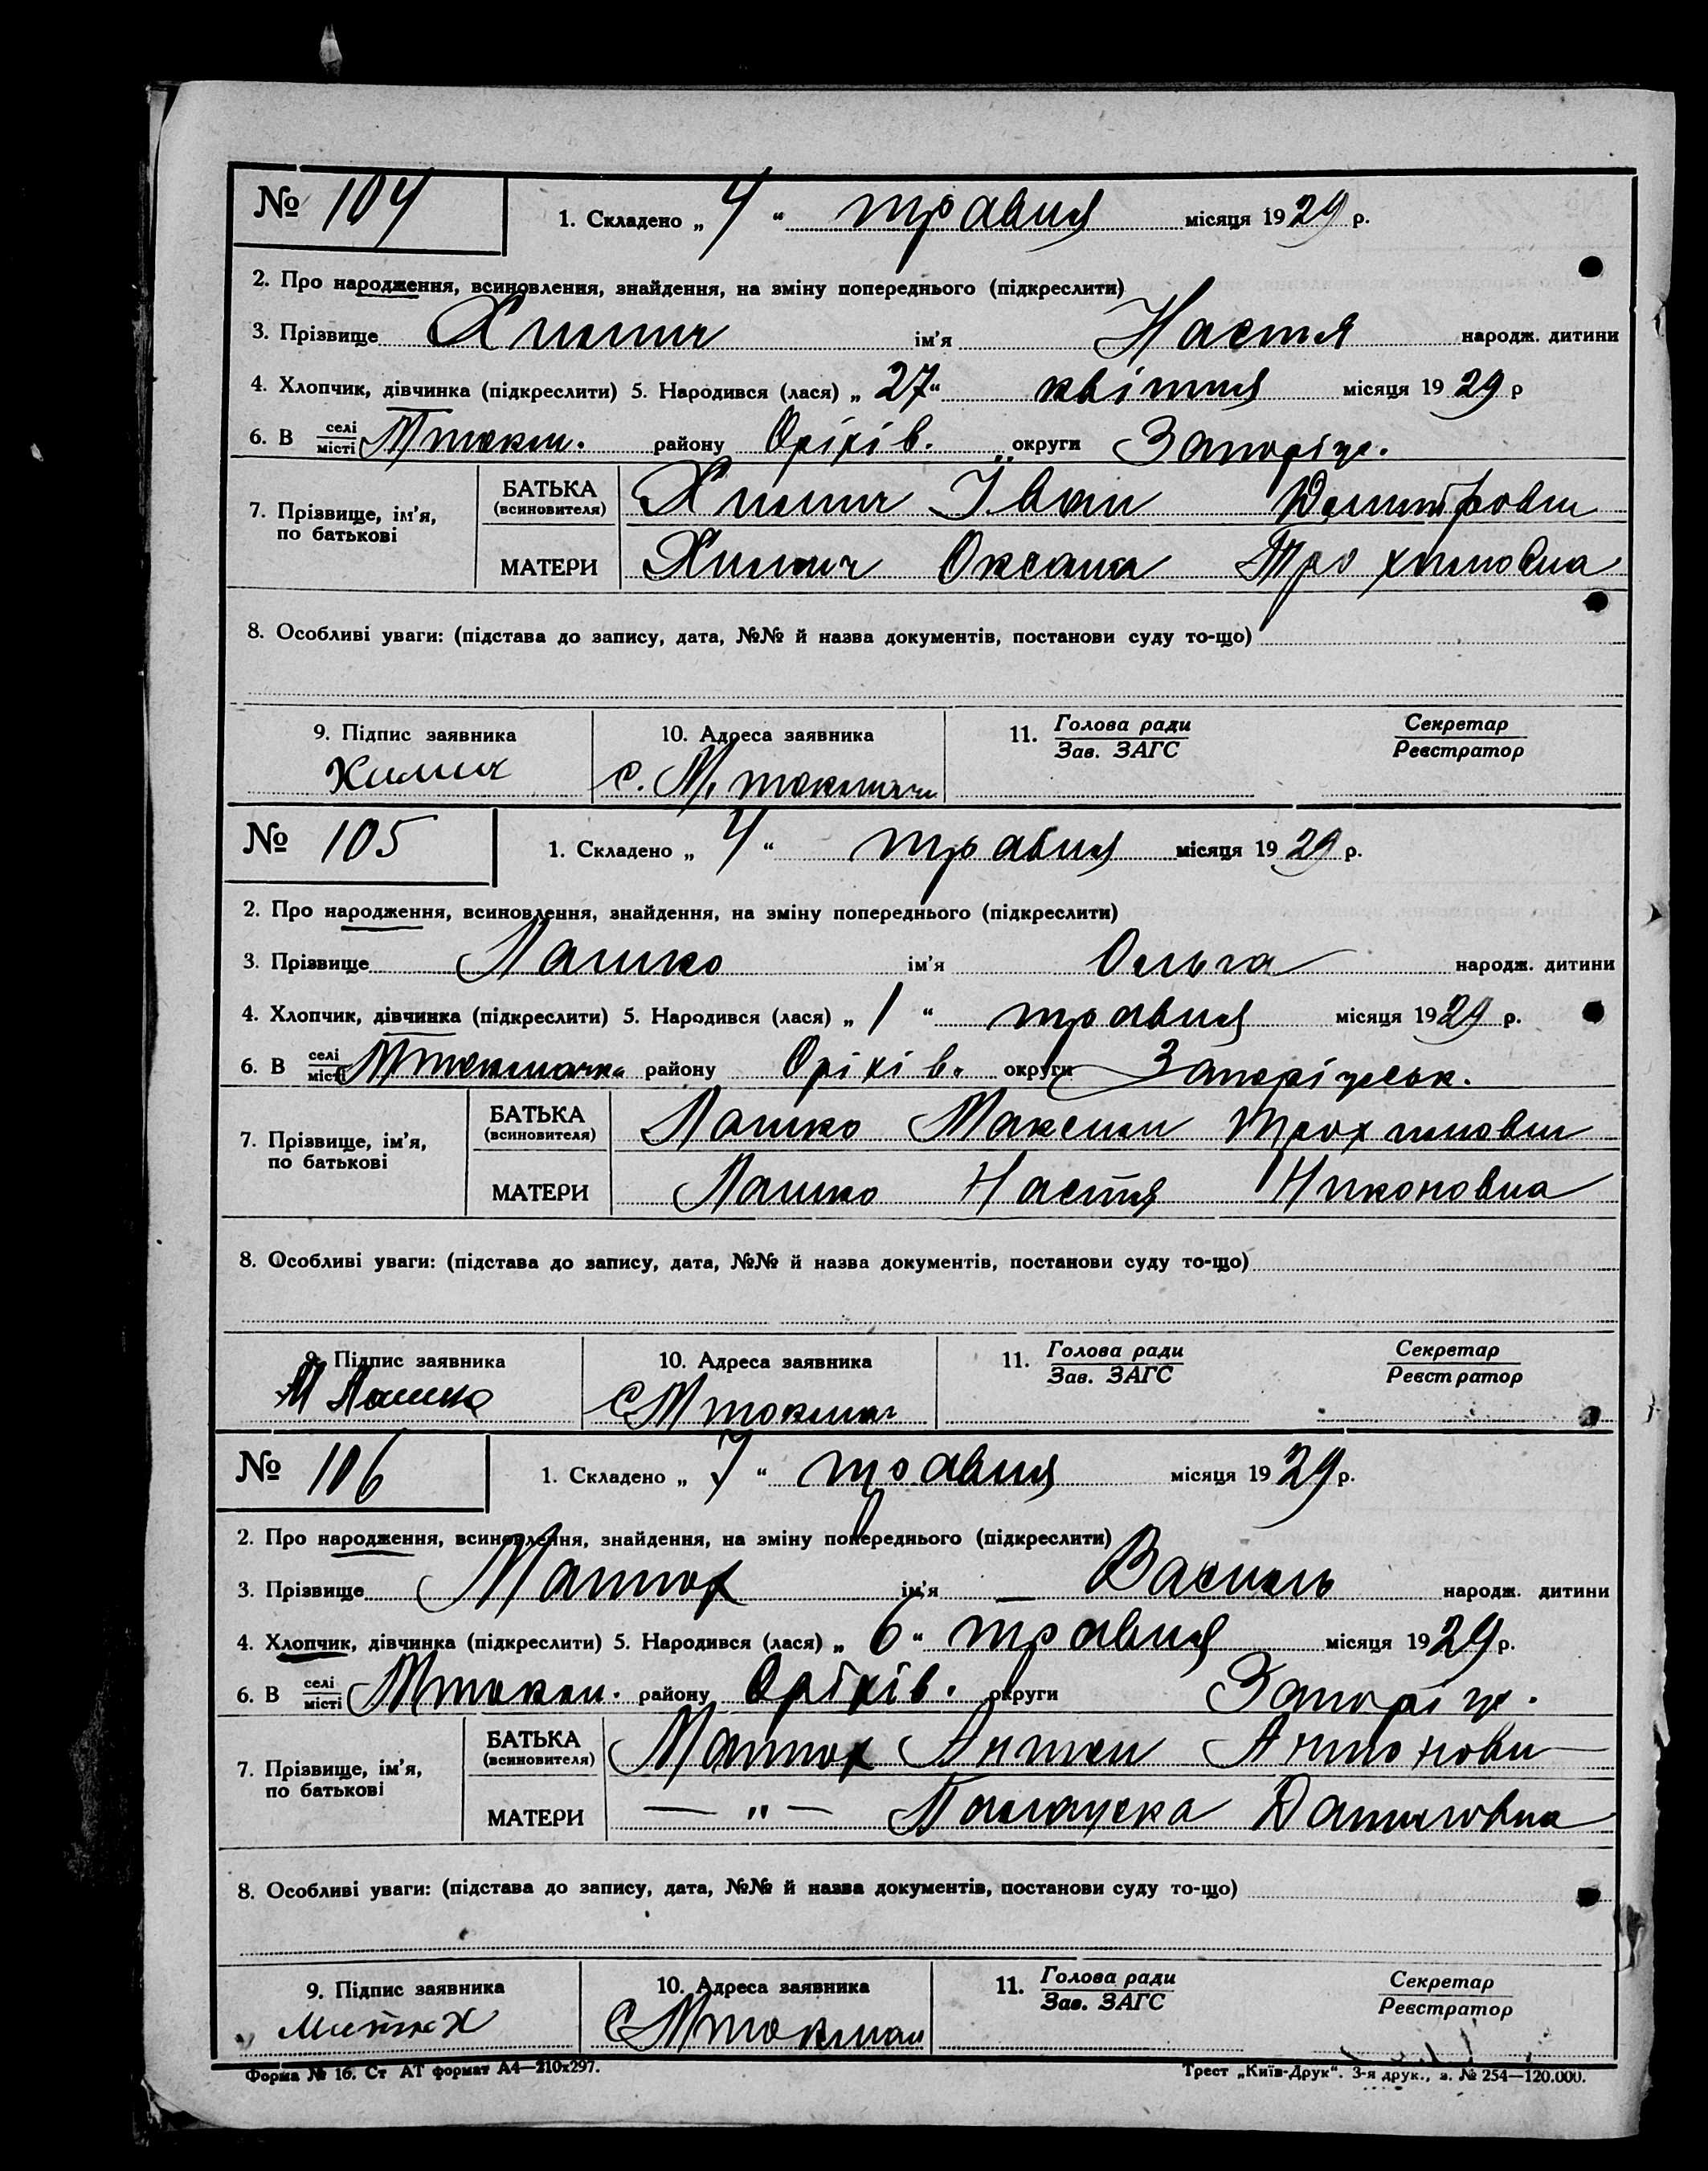 № 104 1. Складено „ 4 “ травня місяця 1929 р.
2. Про народження, всиновлення, знайдення, на зміну попереднього (підкреслити)
3. Прізвище Химич ім'я Настя народж. дитини
4. Хлопчик, дівчинка (підкреслити) 5. Народився (лася) „ 27 “ квітня місяця 19 29 р
6. В селі місті М токм. району Оріхів. округи Запоріж.
7. Прізвище, ім'я, по батькові
БАТЬКА (всиновителя) Химич Іван Дмитрович
МАТЕРИ Химич Оксана Трохимовна
8. Особливі уваги: (підстава до запису, дата, №№ й назва документів, постанови суду то-що)
9. Підпис заявника 10. Адреса заявника 11. Голова ради Секретар
Зав. ЗАГС Реєстратор
Химич с. М. токмачк
№ 105 1. Складено „ 4 “ травня місяця 19 29 р.
2. Про народження, всиновлення, знайдення, на зміну попереднього (підкреслити)
3. Прізвище Лашко ім'я Ольга народж. дитини
4. Хлопчик, дівчинка (підкреслити) 5. Народився (лася) „ 1 “ травня місяця 1929 р.
6. В селі місті М токмачка району Оріхів. округи Запоріжськ.
7. Прізвище, ім'я, по батькові
БАТЬКА (всиновителя) Лашко Максим Трохимович
МАТЕРИ Лашко Настя Никоновна
8. Особливі уваги: (підстава до запису, дата, №№ й назва документів, постанови суду то-що)
9. Підпис заявника 10. Адреса заявника 11. Голова ради Секретар
Зав. ЗАГС Реєстратор
М Лашко С М токмач
№ 106 1. Складено „ 7 “ травня місяця 19 29 р.
2. Про народження, всиновлення, знайдення, на зміну попереднього (підкреслити)
3. Прізвище ім'я Василь народж. дитини
4. Хлопчик, дівчинка (підкреслити) 5. Народився (лася) „ 6 “ травня місяця 1929 р.
6. В селі місті М токм. району Оріхів. округи Запоріж.
7. Прізвище, ім'я, по батькові
БАТЬКА (всиновителя) Антон Антонович
МАТЕРИ — „ — Палажка Даниловна
8. Особливі уваги: (підстава до запису, дата, №№ й назва документів, постанови суду то-що)
9. Підпис заявника 10. Адреса заявника 11. Голова ради Секретар
Зав. ЗАГС Реєстратор
С М токмач
Форма № 16. Ст АТ формат А4—210х297. Трест „Київ-Друк“. 3-я друк., з. № 254—120.000.